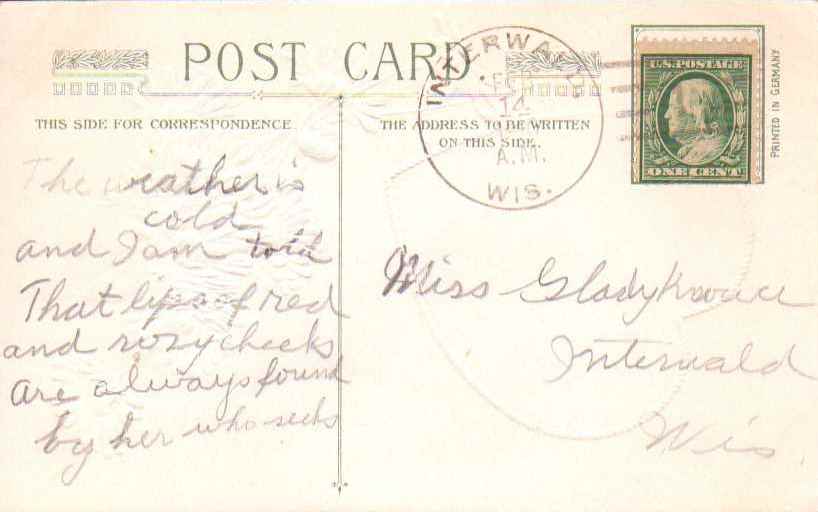 POST CARD.
THIS SIDE FOR CORRESPONDENCE.
THE ADDRESS TO BE WRITTEN
ON THIS SIDE.
INTERWALD
FEB
14
A.M.
WIS.
U.S. POSTAGE
ONE CENT
PRINTED IN GERMANY
The weather is
cold
and I am told
That lips of red
and rosy cheeks
are always found
by her who seeks
Miss Glady
Interwald
Wis.